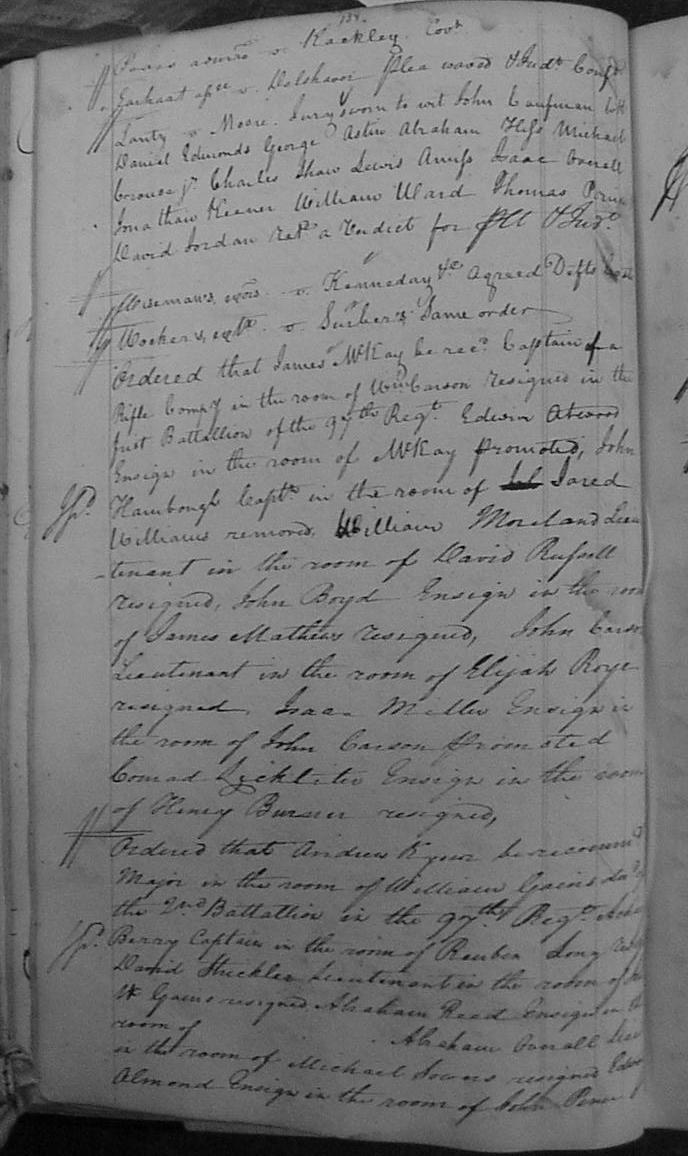 138.
admrs v. Kackley Covt
Garhart apee v. Dolshavor plea waved & Judt Confd
Lantz v Moore. Jury sworn to wit John Caufman
Daniel Edmonds George Astin Abraham Hess Michael
Jr Charles Shaw Lewis Amiss Isaac Overall
Jonathan Keener William Ward Thomas
David Jordan retd a Verdict for Plt & Judt.
Wisemans, exors. v. Kenneday &c agreed Defts
v. Same order
Ordered that James McKay be recd Captain of a
Rifle Compy in the room of Wm Carson resigned in the
first Battallion of the 97th Regt. Edwin Atwood
Ensign in the room of McKay promoted, John
Hambough Captn in the room of Jared
Williams removed, William Moreland Lieu
-tenant in the room of David Russell
resigned, John Boyd Ensign in the room
of James Mathews resigned, John Carson
Lieutenant in the room of Elijah Roye
resigned. Isaac Miller Ensign in
the room of John Carson promoted
Conrad Lickliter Ensign in the room
of Henry Burner resigned,
Ordered that Andrew Keyser be recommd
Major in the room of William Gains
the 2nd Battallion in the 97th Regt.
Berry Captain in the room of Reuben Long
David Strickler Lieutenant in the room of
Gains resigned Abraham Reed Ensign in the
room of Abraham Overall Lieu
in the room of Michael Sowers resigned
Almond Ensign in the room of John